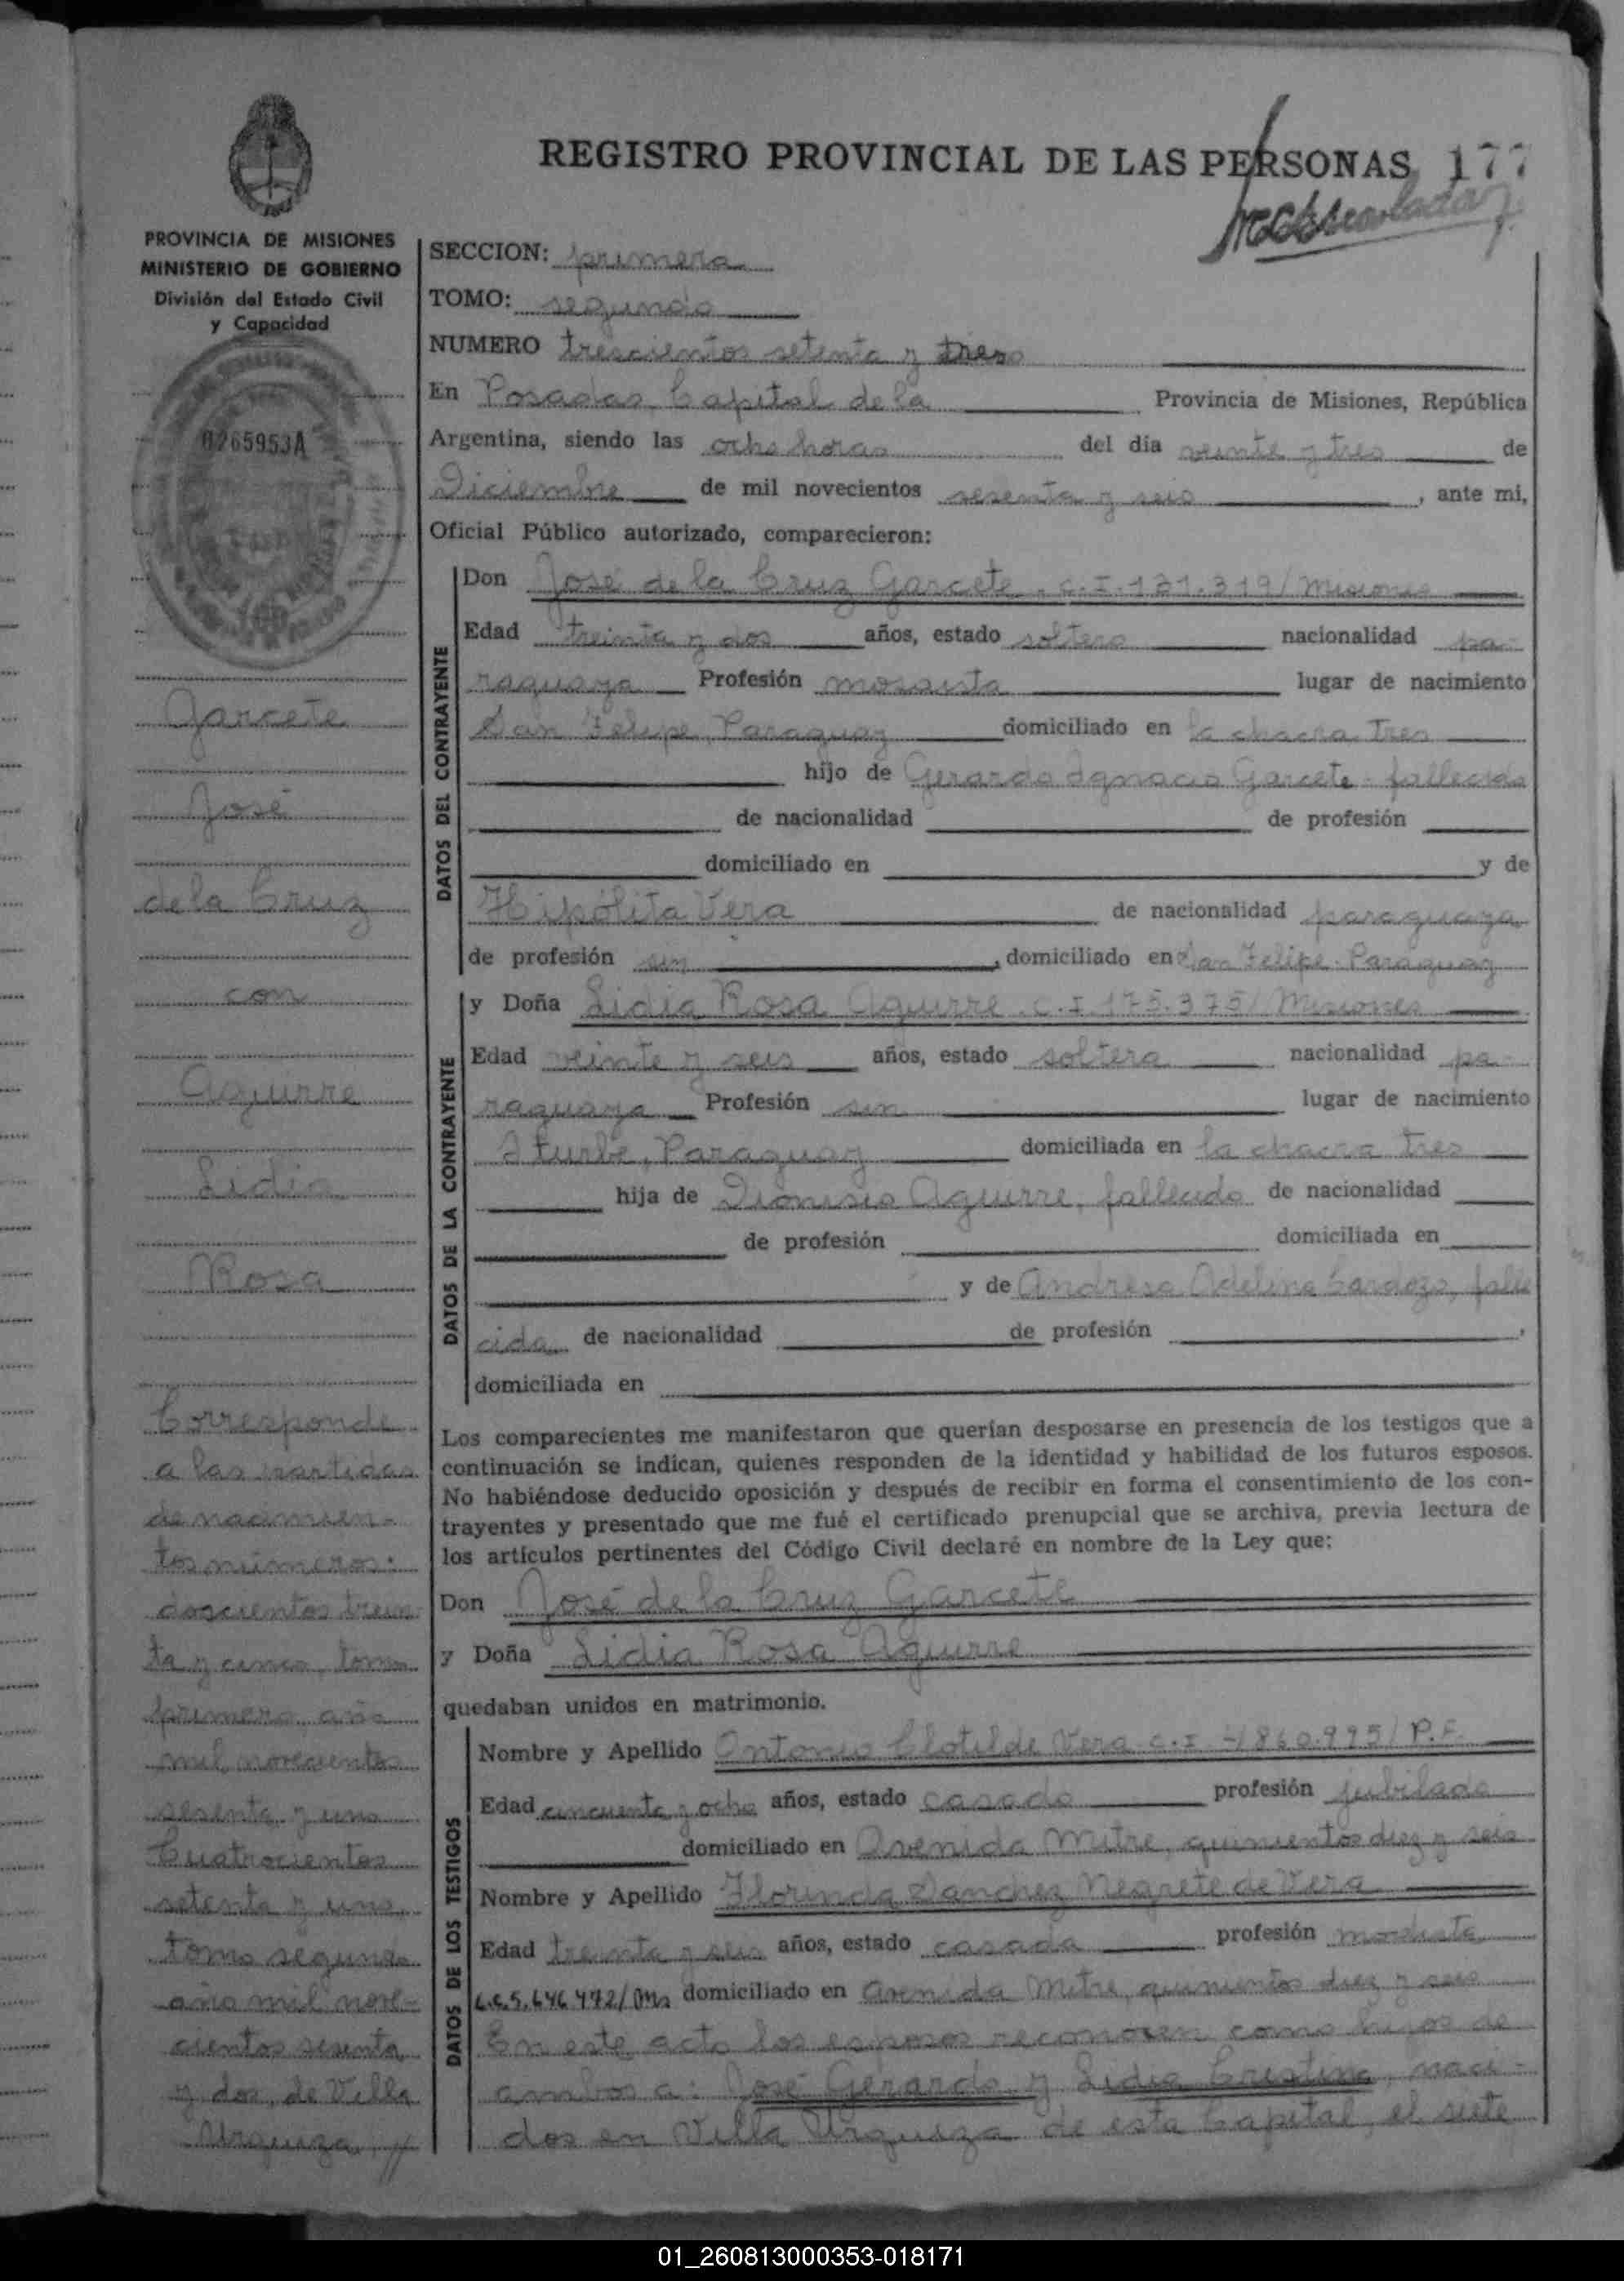 REGISTRO PROVINCIAL DE LAS PERSONAS 177
PROVINCIA DE MISIONES
MINISTERIO DE GOBIERNO
División del Estado Civil
y Capacidad
0265953A
Garcete
José
de la Cruz
con
Aguirre
Lidia
Rosa
Corresponde
a las partidas
de nacimien-
tos números:
doscientos trein
ta y cinco, tomo
primero año
mil novecientos
sesenta y uno
Cuatrocientos
setenta y uno
tomo segundo
año mil nove-
cientos sesenta
y dos, de Villa
Urquiza.
SECCION: primera
TOMO: segundo
NUMERO trescientos setenta y tres
En Posadas Capital de la Provincia de Misiones, República
Argentina, siendo las ocho horas del día veinte y tres de
Diciembre de mil novecientos sesenta y seis, ante mi,
Oficial Público autorizado, comparecieron:
DATOS DEL CONTRAYENTE
Don José de la Cruz Garcete. C.I. 121.319/ Misiones
Edad treinta y dos años, estado soltero nacionalidad pa-
raguaya Profesión mosaista lugar de nacimiento
San Felipe, Paraguay domiciliado en la chacra tres
hijo de Gerardo Ignacio Garcete - fallecido
de nacionalidad de profesión
domiciliado en y de
Hipólita Vera de nacionalidad paraguaya
de profesión sin, domiciliado en San Felipe. Paraguay
DATOS DE LA CONTRAYENTE
y Doña Lidia Rosa Aguirre. C.I. 175.375/ Misiones
Edad veinte y seis años, estado soltera nacionalidad pa-
raguaya Profesión sin lugar de nacimiento
Iturbe, Paraguay domiciliada en la chacra tres
hija de Dionisio Aguirre, fallecido de nacionalidad
de profesión domiciliada en
y de Andresa Adelina Cardozo, falle
cida de nacionalidad de profesión,
domiciliada en
Los comparecientes me manifestaron que querían desposarse en presencia de los testigos que a
continuación se indican, quienes responden de la identidad y habilidad de los futuros esposos.
No habiéndose deducido oposición y después de recibir en forma el consentimiento de los con-
trayentes y presentado que me fué el certificado prenupcial que se archiva, previa lectura de
los artículos pertinentes del Código Civil declaré en nombre de la Ley que:
Don José de la Cruz Garcete
y Doña Lidia Rosa Aguirre
quedaban unidos en matrimonio.
DATOS DE LOS TESTIGOS
Nombre y Apellido Antonio Clotilde Vera C.I. 4860.995/ P.F.
Edad cincuenta y ocho años, estado casado profesión jubilado
domiciliado en Avenida Mitre, quinientos diez y seis
Nombre y Apellido Florinda Sanchez Negrete de Vera
Edad treinta y seis años, estado casada profesión modista
L.C.5.646.472/Ms domiciliado en Avenida Mitre, quinientos diez y seis
En este acto los esposos reconocen como hijos de
ambos a: José Gerardo y Lidia Cristina, naci-
dos en Villa Urquiza de esta Capital, el siete
01_260813000353-018171